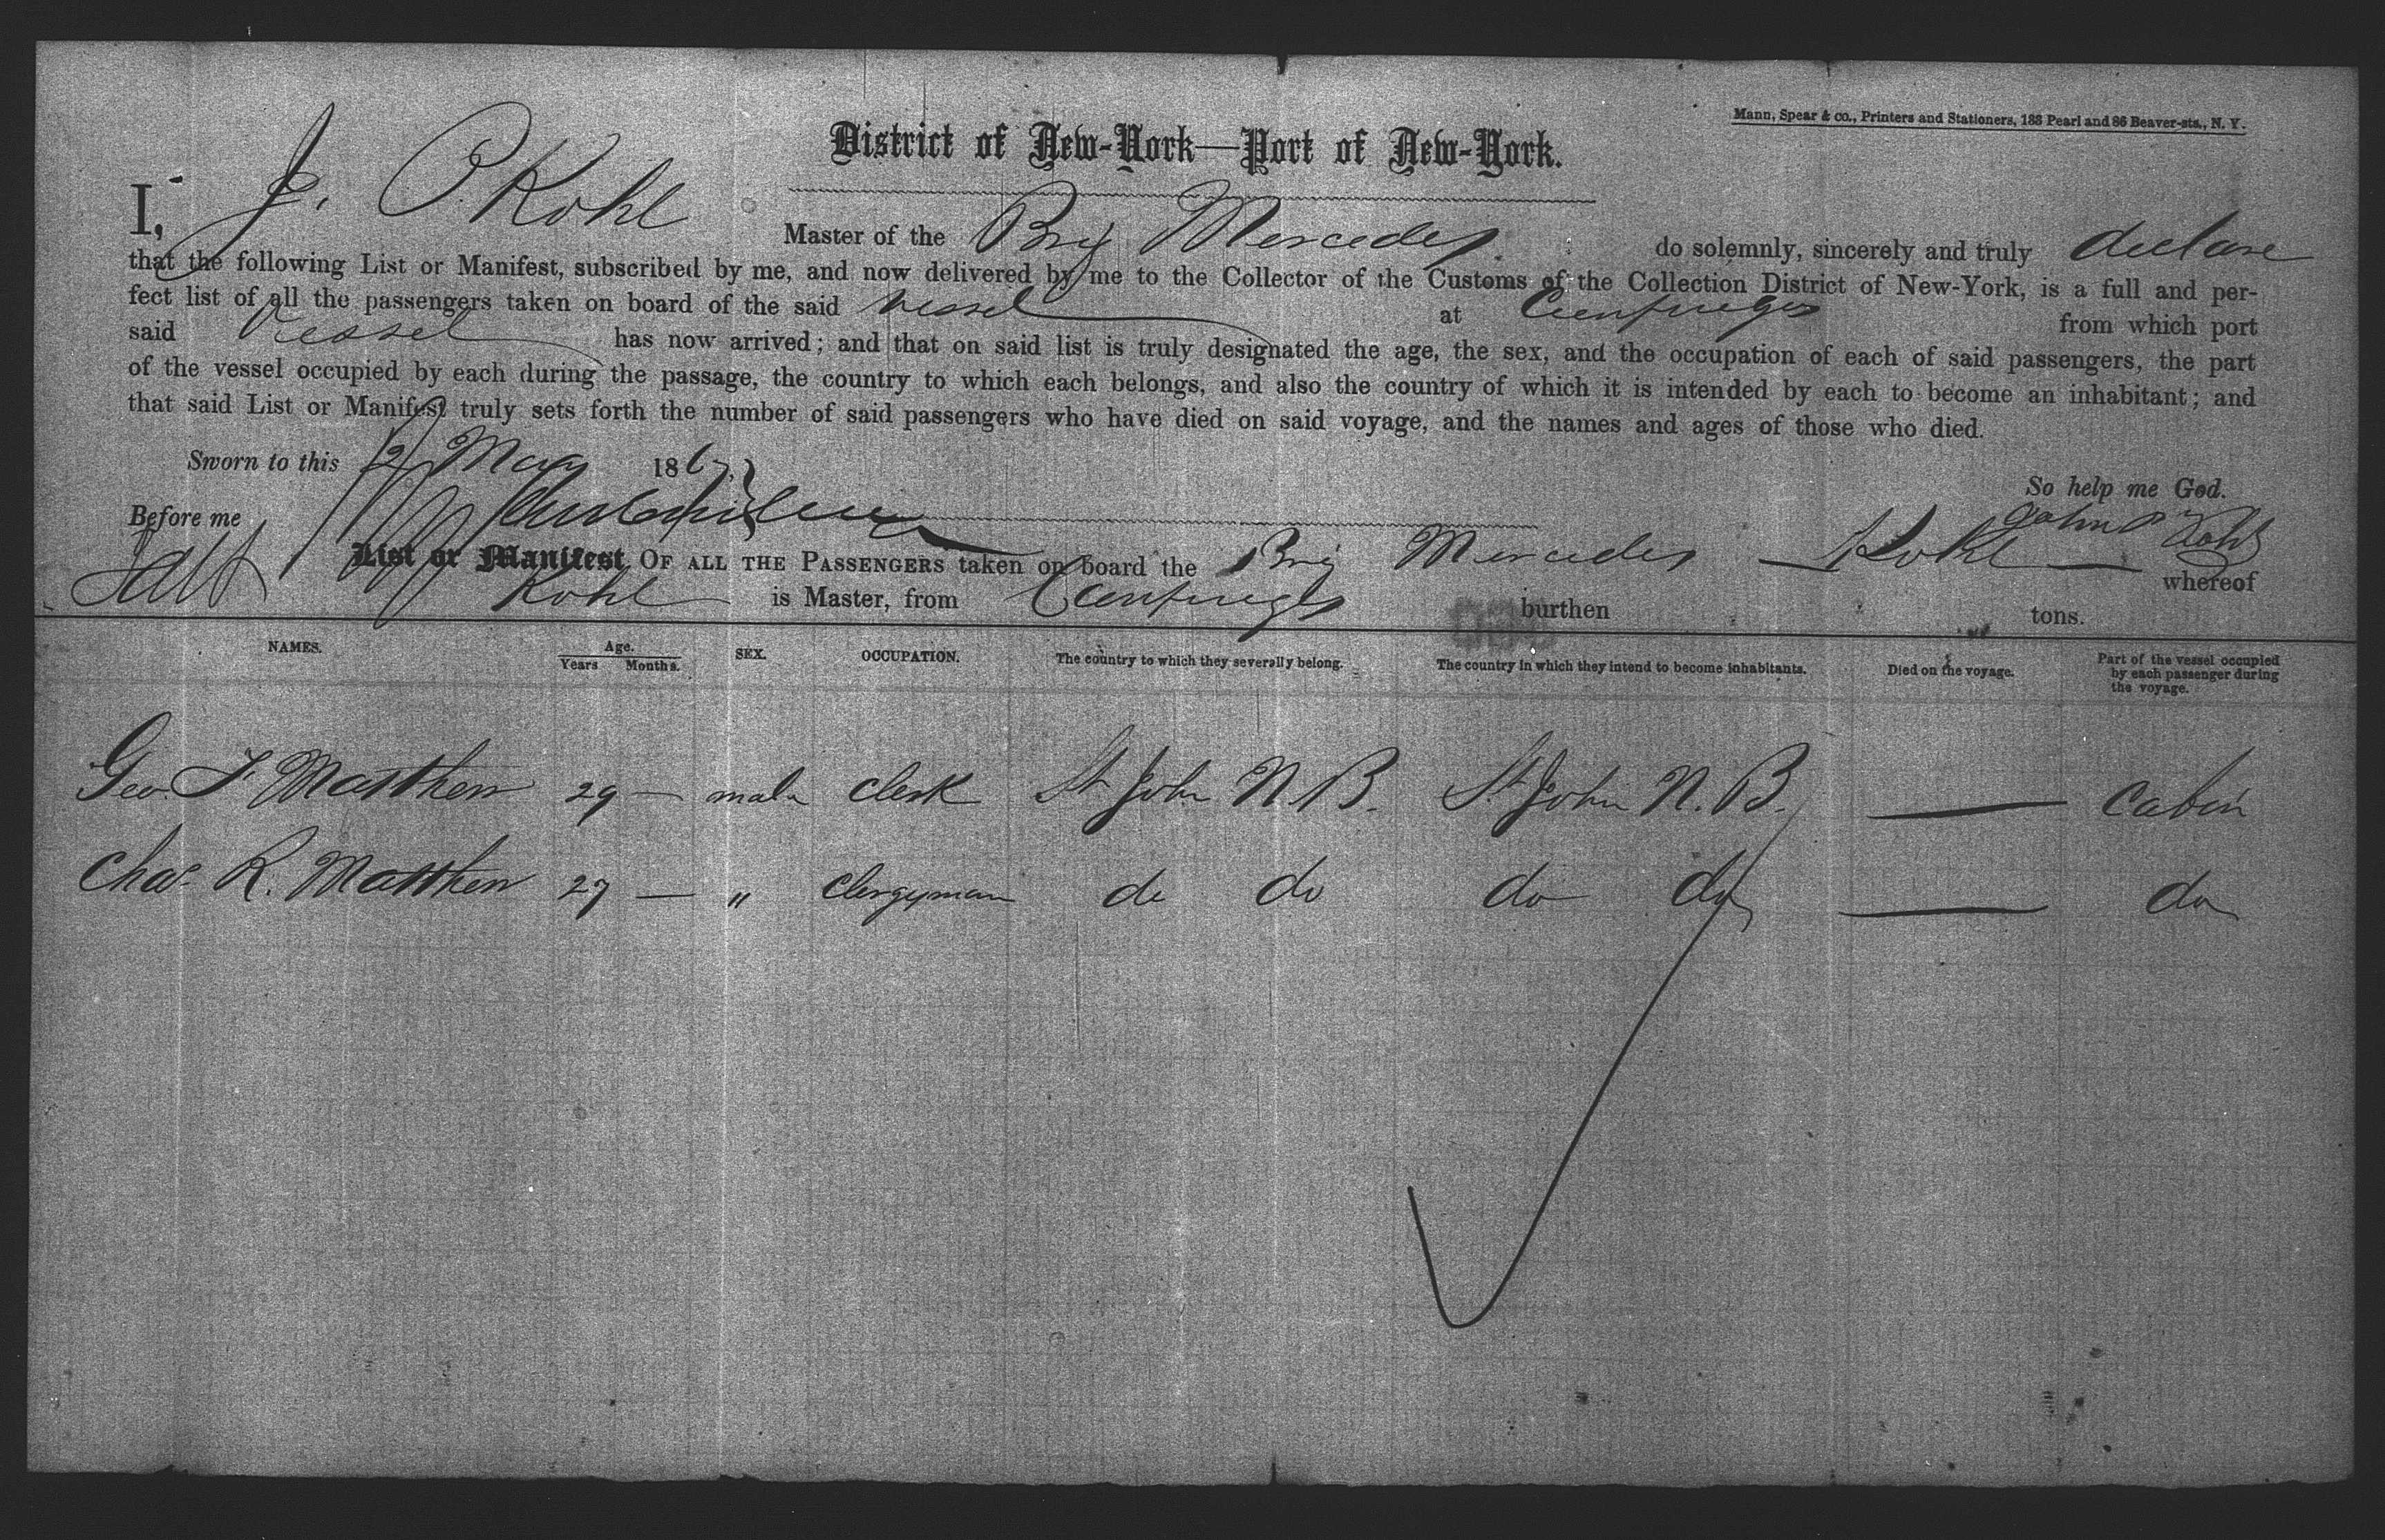 Mann, Spear & co., Printers and Stationers, 188 Pearl and 86 Beaver-sts., N. Y.
District of New-York—Port of New-York.
I, J. P. Kohl Master of the Brig Mercedes do solemnly, sincerely and truly declare
that the following List or Manifest, subscribed by me, and now delivered by me to the Collector of the Customs of the Collection District of New-York, is a full and per-
fect list of all the passengers taken on board of the said vessel at Cienfuegos from which port
said vessel has now arrived; and that on said list is truly designated the age, the sex, and the occupation of each of said passengers, the part
of the vessel occupied by each during the passage, the country to which each belongs, and also the country of which it is intended by each to become an inhabitant; and
that said List or Manifest truly sets forth the number of said passengers who have died on said voyage, and the names and ages of those who died.
Sworn to this May 186
So help me God.
Before me
John P Kohl
List or Manifest OF ALL THE PASSENGERS taken on board the Brig Mercedes — Kohl — whereof
Kohl is Master, from Cienfuegos burthen tons.
NAMES. Age. Years Months. SEX. OCCUPATION. The country to which they severally belong. The country in which they intend to become inhabitants. Died on the voyage. Part of the vessel occupied by each passenger during the voyage.
Geo. F Matthew 29 — male clerk St John N. B. St John N. B. — cabin
Chas. R. Matthew 27 — " clergyman do do do do — do